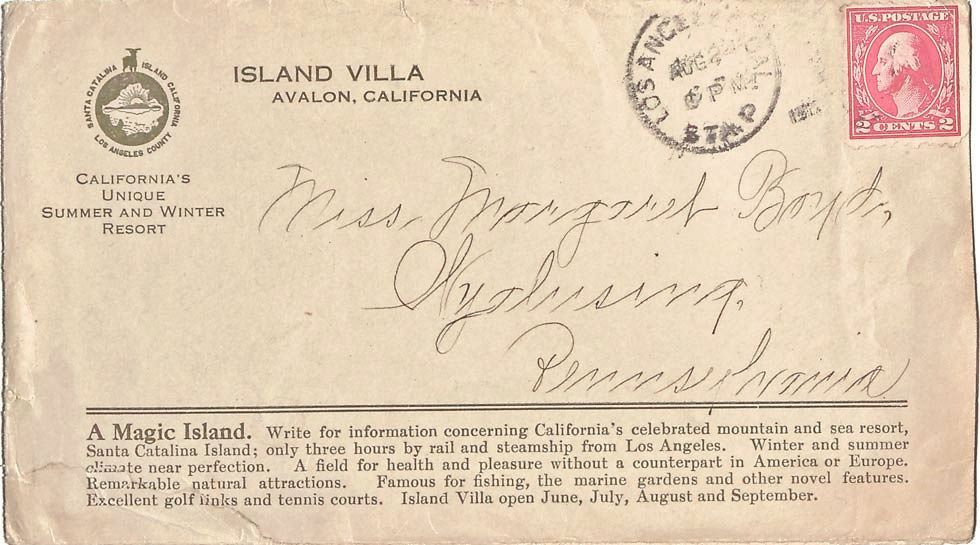 ISLAND VILLA
AVALON, CALIFORNIA
SANTA CATALINA ISLAND CALIFORNIA
LOS ANGELES COUNTY
CALIFORNIA'S
UNIQUE
SUMMER AND WINTER
RESORT
LOS ANGELES
AUG
6 PM
U.S. POSTAGE
2 CENTS 2
Miss Margaret Boyd,
Wyalusing,
Pennsylvania
A Magic Island. Write for information concerning California's celebrated mountain and sea resort,
Santa Catalina Island; only three hours by rail and steamship from Los Angeles. Winter and summer
climate near perfection. A field for health and pleasure without a counterpart in America or Europe.
Remarkable natural attractions. Famous for fishing, the marine gardens and other novel features.
Excellent golf links and tennis courts. Island Villa open June, July, August and September.